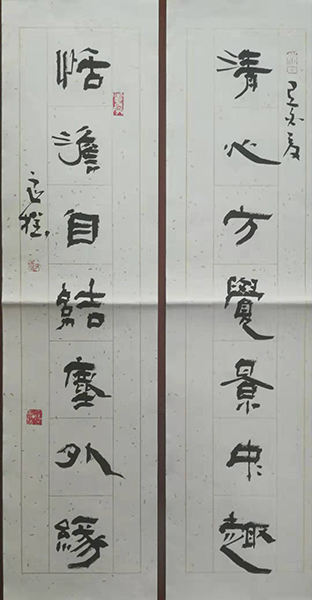 清心方覺景中趣
己亥夏
恬澹自結塵外緣